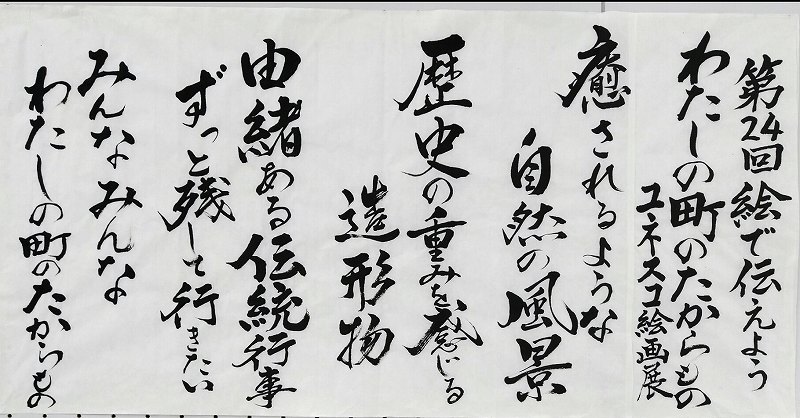 第24回絵で伝えよう
わたしの町のたからもの
ユネスコ絵画展
癒されるような
自然の風景
歴史の重みを感じる
造形物
由緒ある伝統行事
ずっと残して行きたい
みんなみんな
わたしの町のたからもの